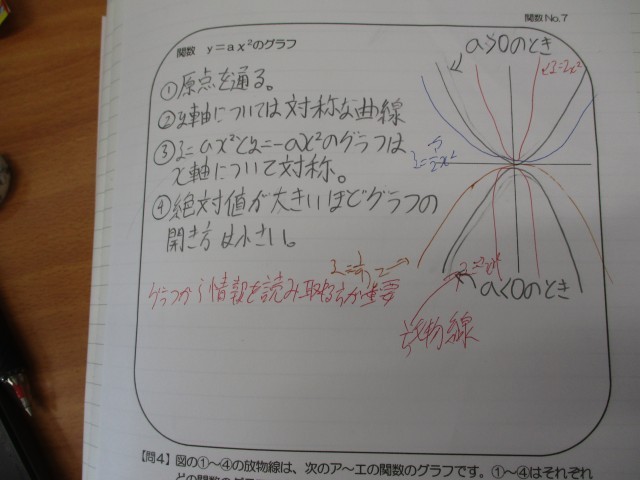 関数No.7
関数 y=ax²のグラフ
a>0のとき
①原点を通る。
y=2x²
②y軸については対称な曲線
③y=ax²とy=-ax²のグラフは
x軸について対称。
y=1/2x²
④絶対値が大きいほどグラフの
開き方は小さい。
グラフから情報を読み取る力が重要
a<0のとき
放物線
【問4】図の①～④の放物線は、次のア～エの関数のグラフです。①～④はそれぞれ